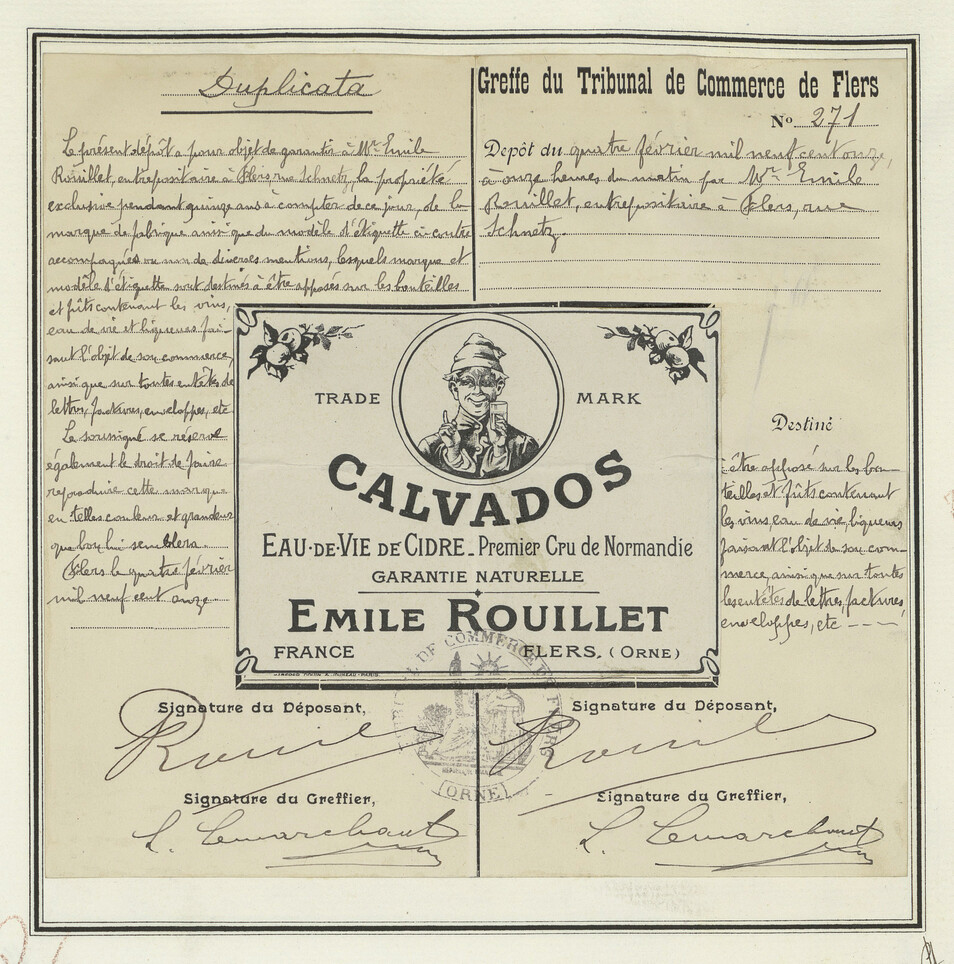 Duplicata
Le présent dépôt a pour objet de garantir à Mr Emile
Rouillet, entrepositaire à Flers, rue Schnetz, la propriété
exclusive pendant quinze ans à compter de ce jour, de la
marque de fabrique ainsi que du modèle d'étiquette ci-contre
accompagnés ou non de diverses mentions, lesquels marque et
modèle d'étiquette sont destinés à être apposés sur les bouteilles
et fûts contenant les vins,
eau de vie et liqueurs fai-
sant l'objet de son commerce,
ainsi que sur toutes entêtes de
lettres, factures, enveloppes, etc
Le soussigné se réserve
également le droit de faire
reproduire cette marque
en telles couleur et grandeur
que bon lui semblera.
Flers le quatre février
mil neuf cent onze.
Greffe du Tribunal de Commerce de Flers
No 271
Dépôt du quatre février mil neuf cent onze,
à onze heures du matin par Mr Emile
Rouillet, entrepositaire à Flers, rue
Schnetz.
TRADE MARK
CALVADOS
EAU-DE-VIE DE CIDRE_ Premier Cru de Normandie
GARANTIE NATURELLE
EMILE ROUILLET
FRANCE FLERS, (ORNE)
Destiné
à être apposé sur les bou-
teilles et fûts contenant
les vins, eau de vie, liqueurs
faisant l'objet de son com-
merce, ainsi que sur toutes
les entêtes de lettres, factures,
enveloppes, etc ----
TRIBUNAL DE COMMERCE DE FLERS
(ORNE)
Signature du Déposant,
Rouillet
Signature du Greffier,
L. Lemarchant
Signature du Déposant,
Rouillet
Signature du Greffier,
L. Lemarchant